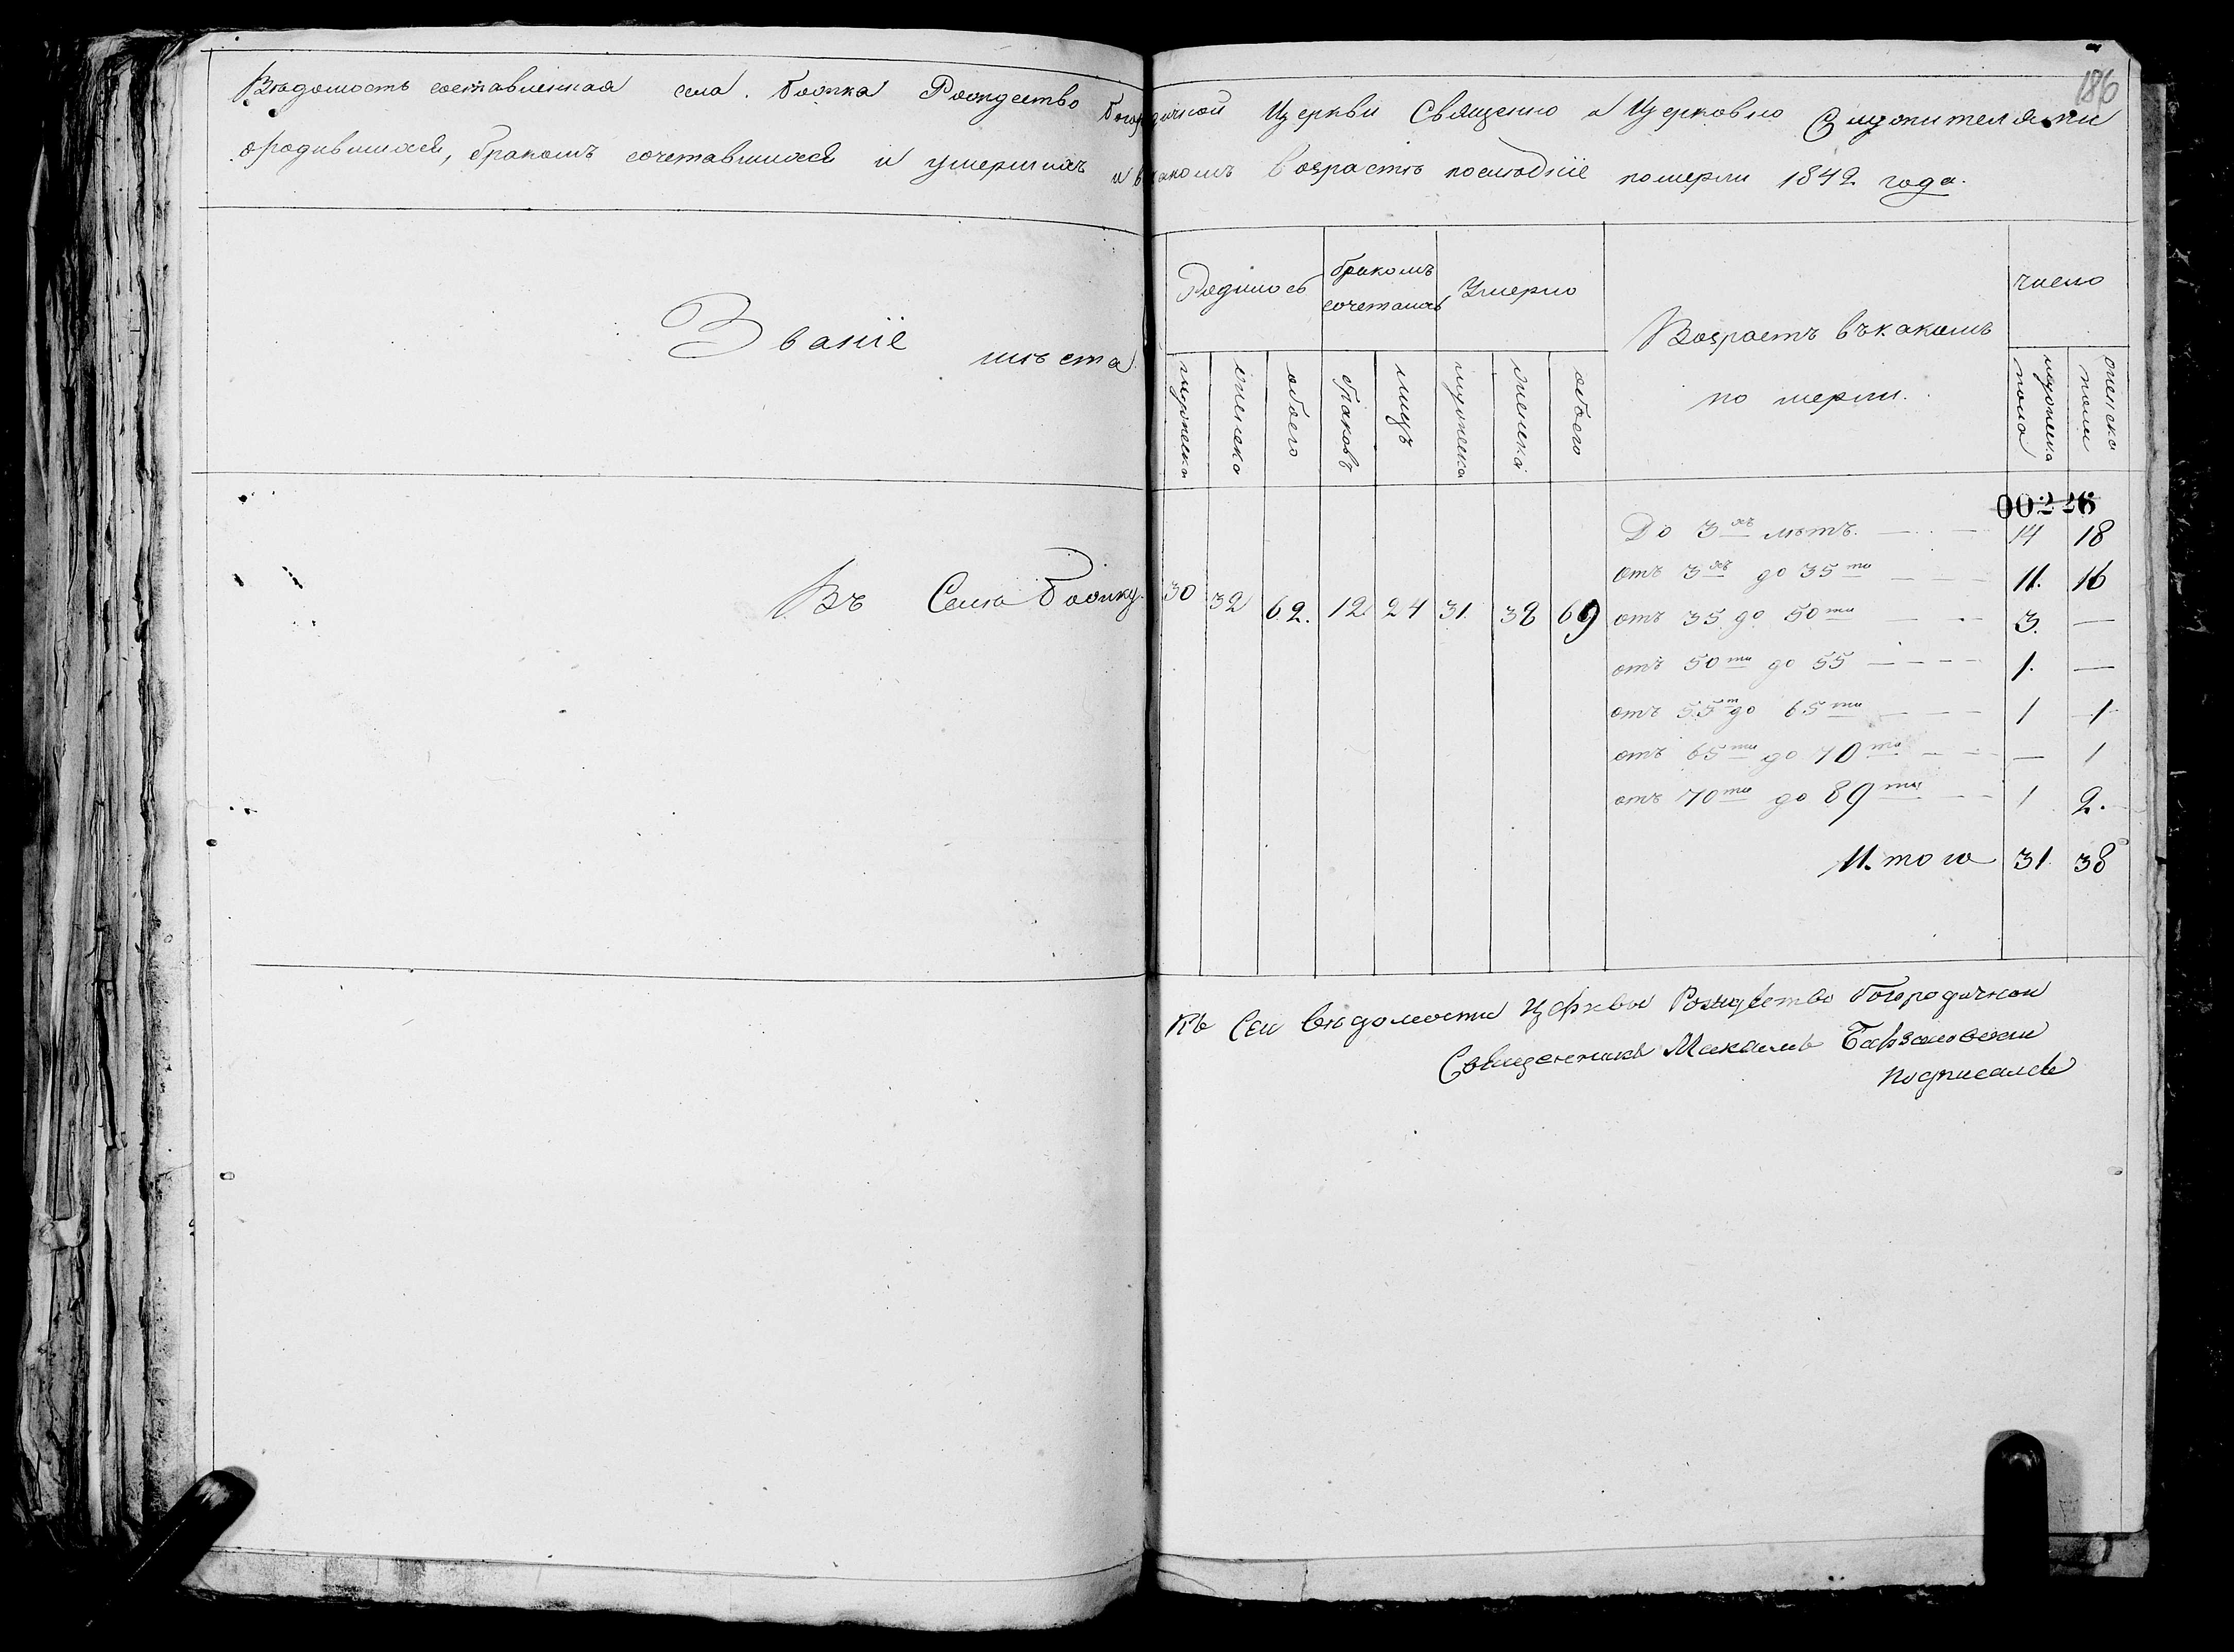 186
Вѣдомость составленная села Бошка Рождество Богородичной Церкви Священно и Церковно Служителями
ородившихся, бракомъ сочетавшихся и умершихъ и вкакомъ возрастѣ послѣдніе померли 1842 года.
Званіе мѣста
Родилось
бракомъ сочеталось
Умерло
Возрастъ въкакомъ по мерли.
число
мужеска
женска
обоего
браковъ
лицъ
мужеска
женска
обоего
мужеска пола
женска пола
00226
Въ Селѣ 30 32 62. 12. 24 31. 38 69
До 3хъ лѣтъ. — 14 18
отъ 3хъ до 35ти — 11. 16
отъ 35 до 50ти — 3. —
отъ 50ти до 55 — 1. —
отъ 55т до 65ти — 1 1
отъ 65ти до 70ти — — 1
отъ 70ти до 89ти — 1 2.
И того 31. 38
Къ Сей Ведомости Церквы Рождество Богородичной
Священникъ Михаилъ
подписалсь